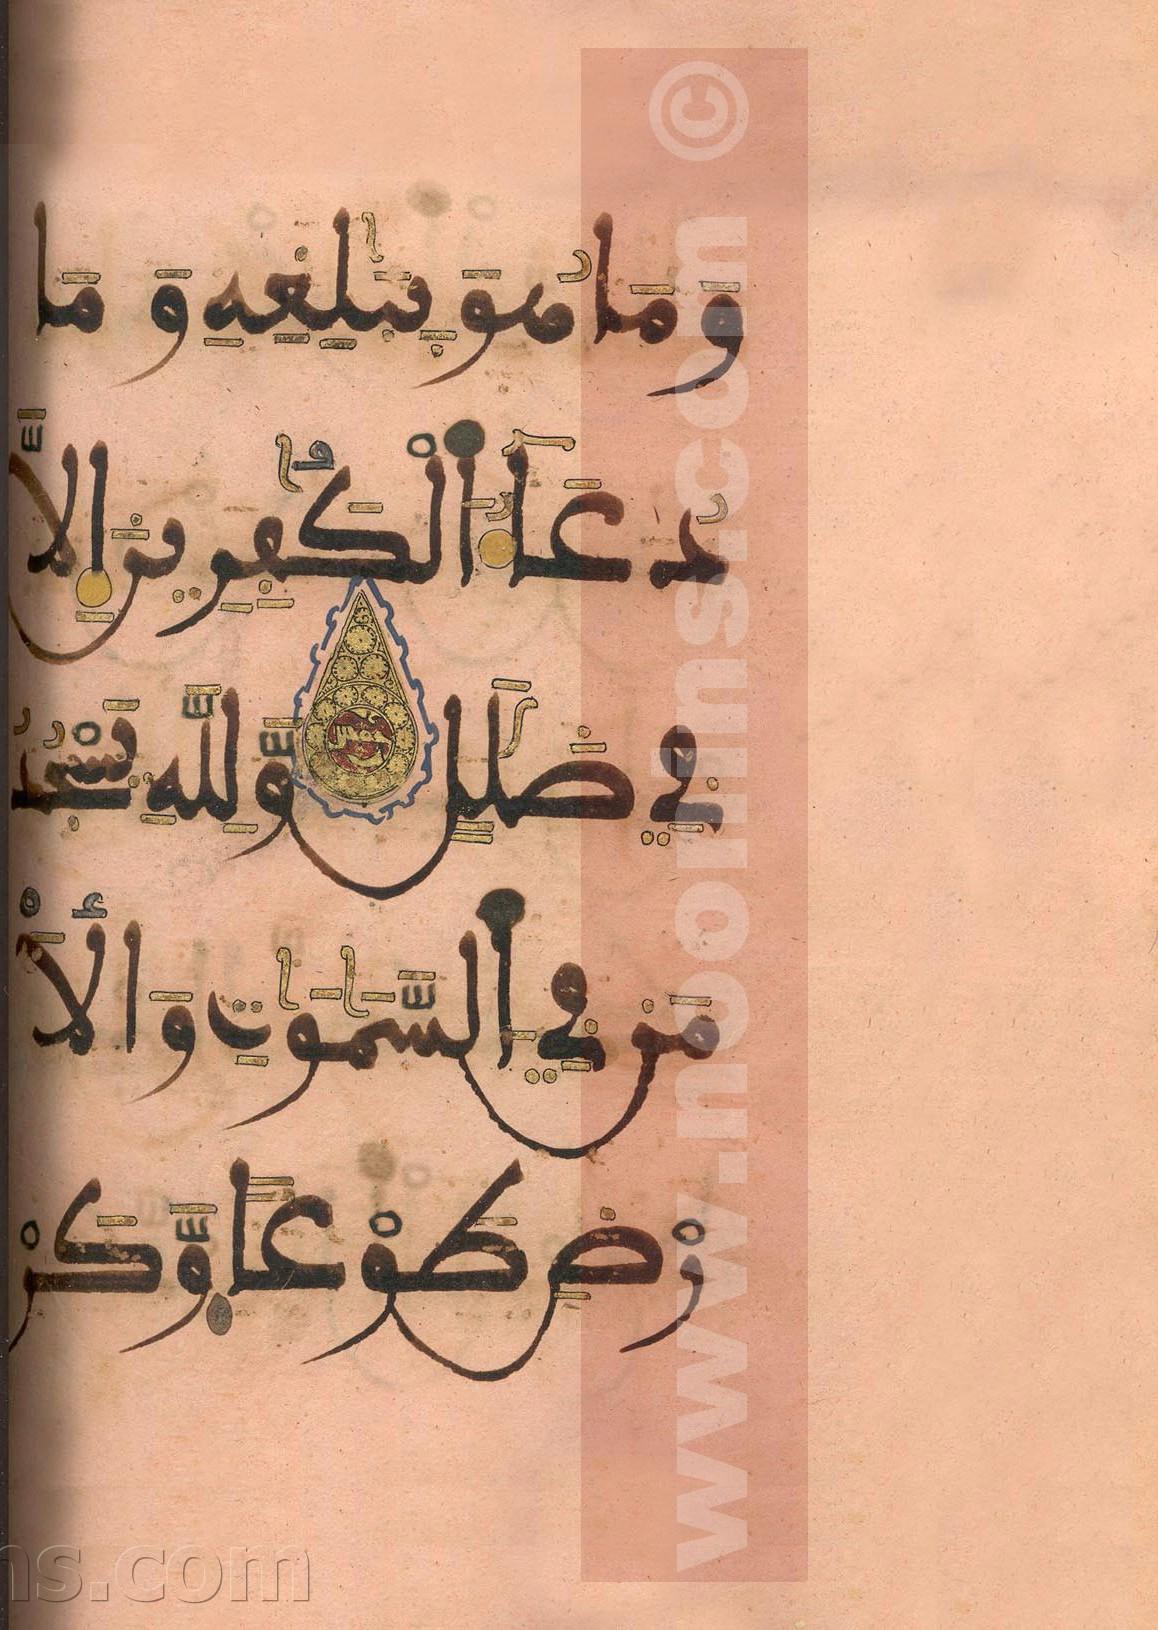 وَمَا هُوَ بِبَٰلِغِهِۦ وَمَا
دُعَآءُ اَ۬لْكَٰفِرِينَ إِلَّا
فِے ضَلَٰلٖ وَلِلهِ يَسْجُدُ
مَن فِے اِ۬لسَّمَٰوَٰتِ وَالَا
رْضِ طَوْعاٗ وَكَرْ
www.noorlins.com ©
ns.com